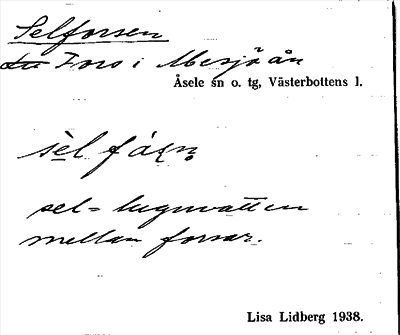 Selforsen
Fors i Mesjöån
Åsele sn o. tg, Västerbottens l.
sel = lugnvatten
mellan forsar.
Lisa Lidberg 1938.